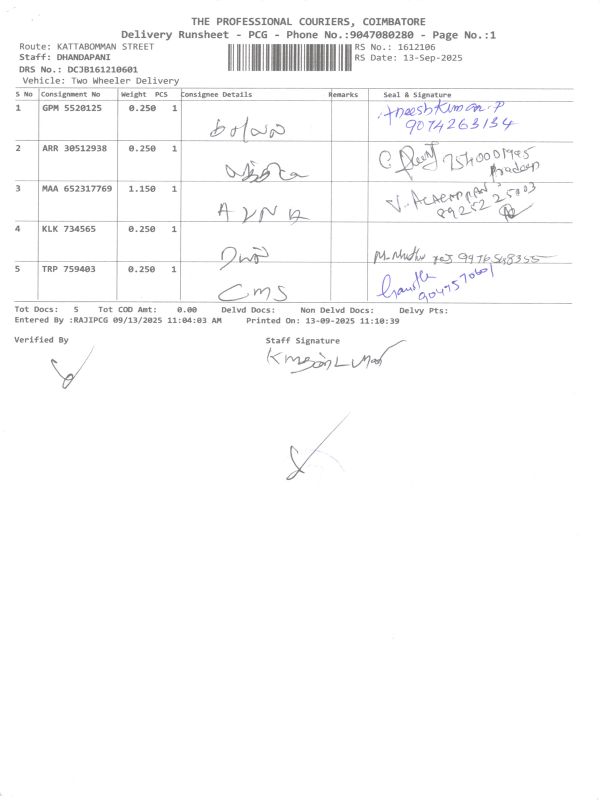 THE PROFESSIONAL COURIERS, COIMBATORE
Delivery Runsheet - PCG - Phone No.:9047080280 - Page No.:1
Route: KATTABOMMAN STREET
RS No.: 1612106
Staff: DHANDAPANI
RS Date: 13-Sep-2025
DRS No.: DCJB161210601
Vehicle: Two Wheeler Delivery
S No Consignment No Weight PCS Consignee Details Remarks Seal & Signature
1 GPM 5520125 0.250 1
9074263134
2 ARR 30512938 0.250 1
Pradeep
3 MAA 652317769 1.150 1
4 KLK 734565 0.250 1
5 TRP 759403 0.250 1 CMS
Tot Docs: 5 Tot COD Amt: 0.00 Delvd Docs: Non Delvd Docs: Delvy Pts:
Entered By :RAJIPCG 09/13/2025 11:04:03 AM Printed On: 13-09-2025 11:10:39
Verified By Staff Signature